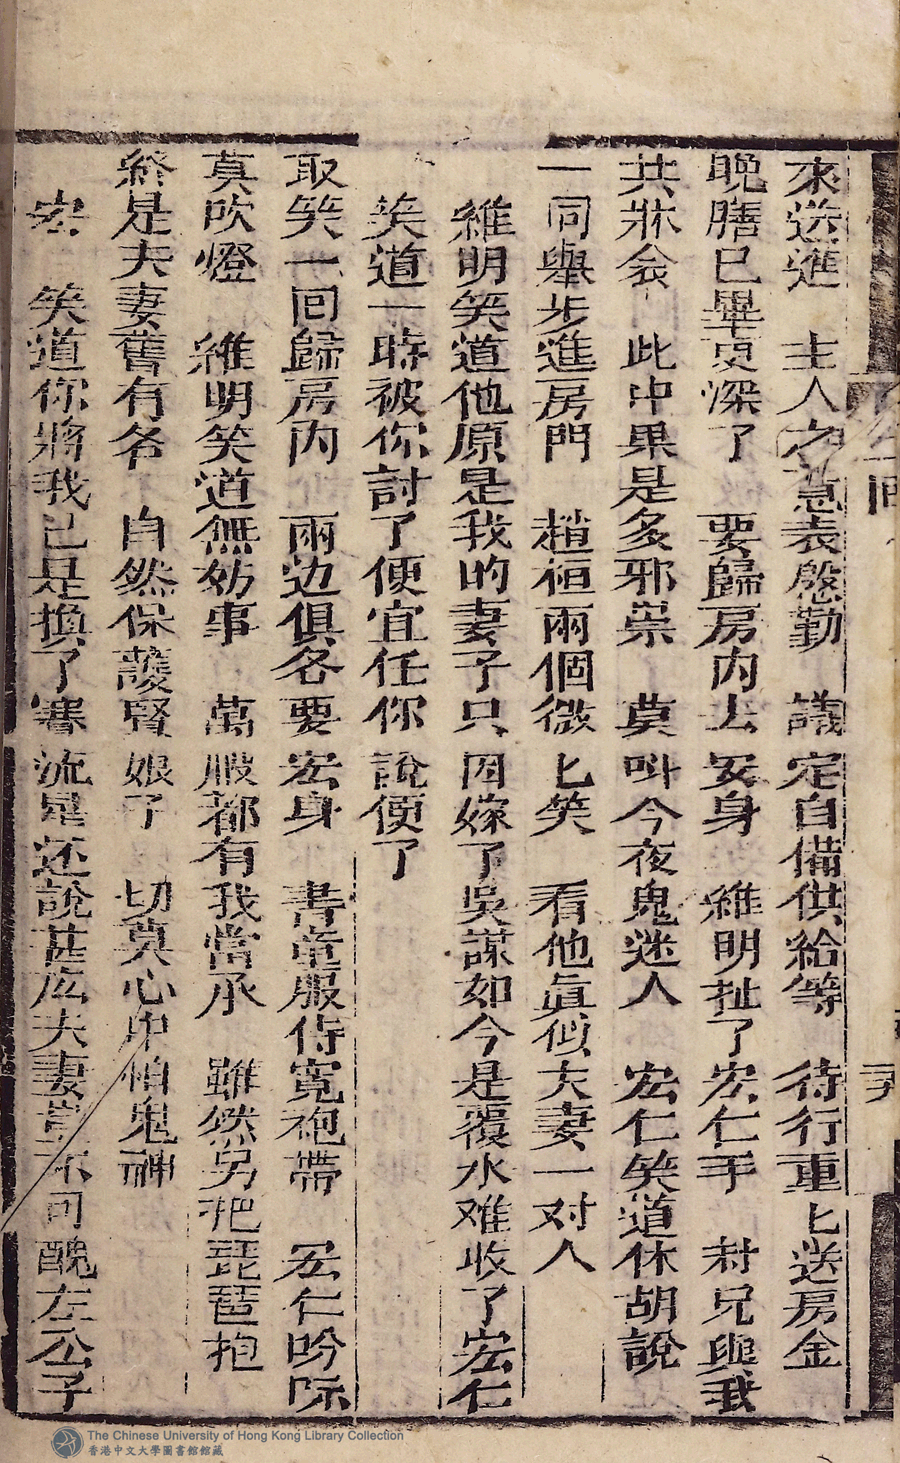 來送進　主人之意表慇勤　議定自備供給等　待行重匕送房金
晚膳已畢更深了　要歸房內去安身　維明扯了宏仁手　対兄與我
共牀会　此中果是多邪祟　莫呌今夜鬼迷人　宏仁笑道休胡說
一同舉步進房門　趙桓兩個微匕笑　看他眞似夫妻一对人
維明笑道他原是我的妻子只因嫁了吳謀如今是覆水难收了宏仁
笑道一時被你討了便宜任你說便了
取笑一回歸房內　兩边俱各要安身　書童服侍寬袍帶　宏仁吟际
真吹燈　維明笑道無妨事　萬般都有我當承　雖然另把琵琶抱
終是夫妻舊有名　自然保護賢娘子　切莫心中怕鬼神
宏　笑道你將我已是換了寨流是还說甚庅夫妻豈不可醜左公子
The Chinese University of Hong Kong Library Collection
香港中文大學圖書館館藏